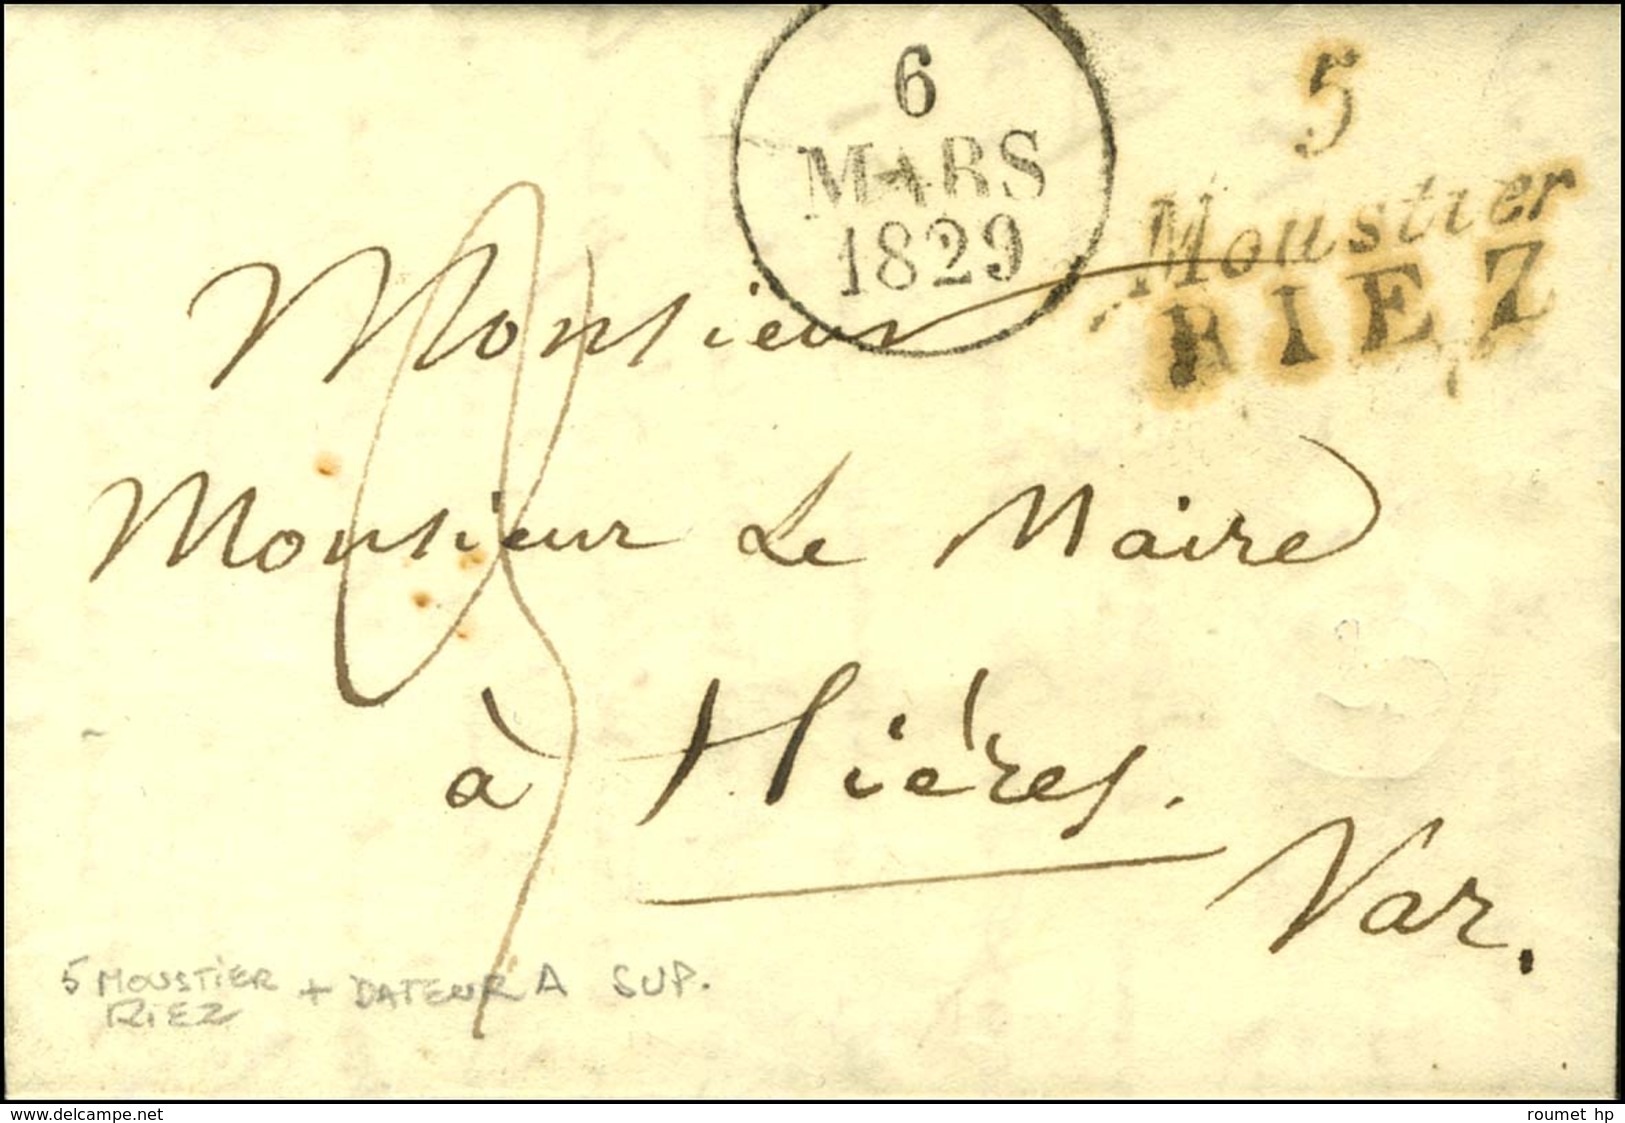 6
MARS
1829
5
Moustier
RIEZ
Monsieur
Monsieur Le Maire
à Hiéres.
Var.
5 MOUSTIER + DATEUR A SUP.
RIEZ
www.delcampe.net
roumet hp